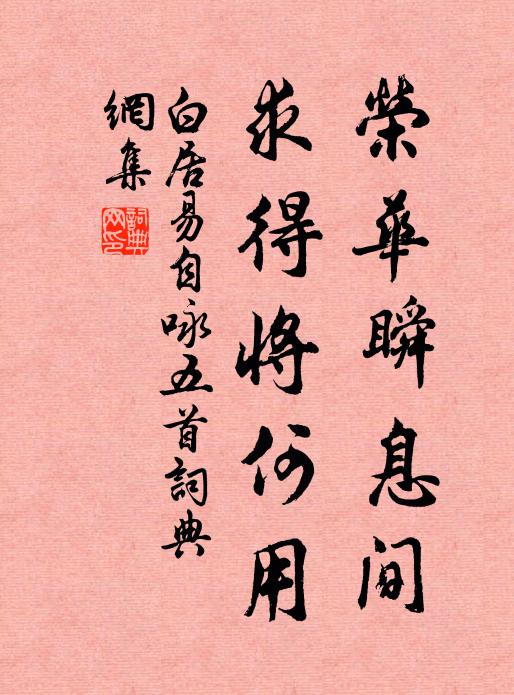 榮華瞬息间
求得將何用
白居易自咏五首詞典
網集
詞典網印